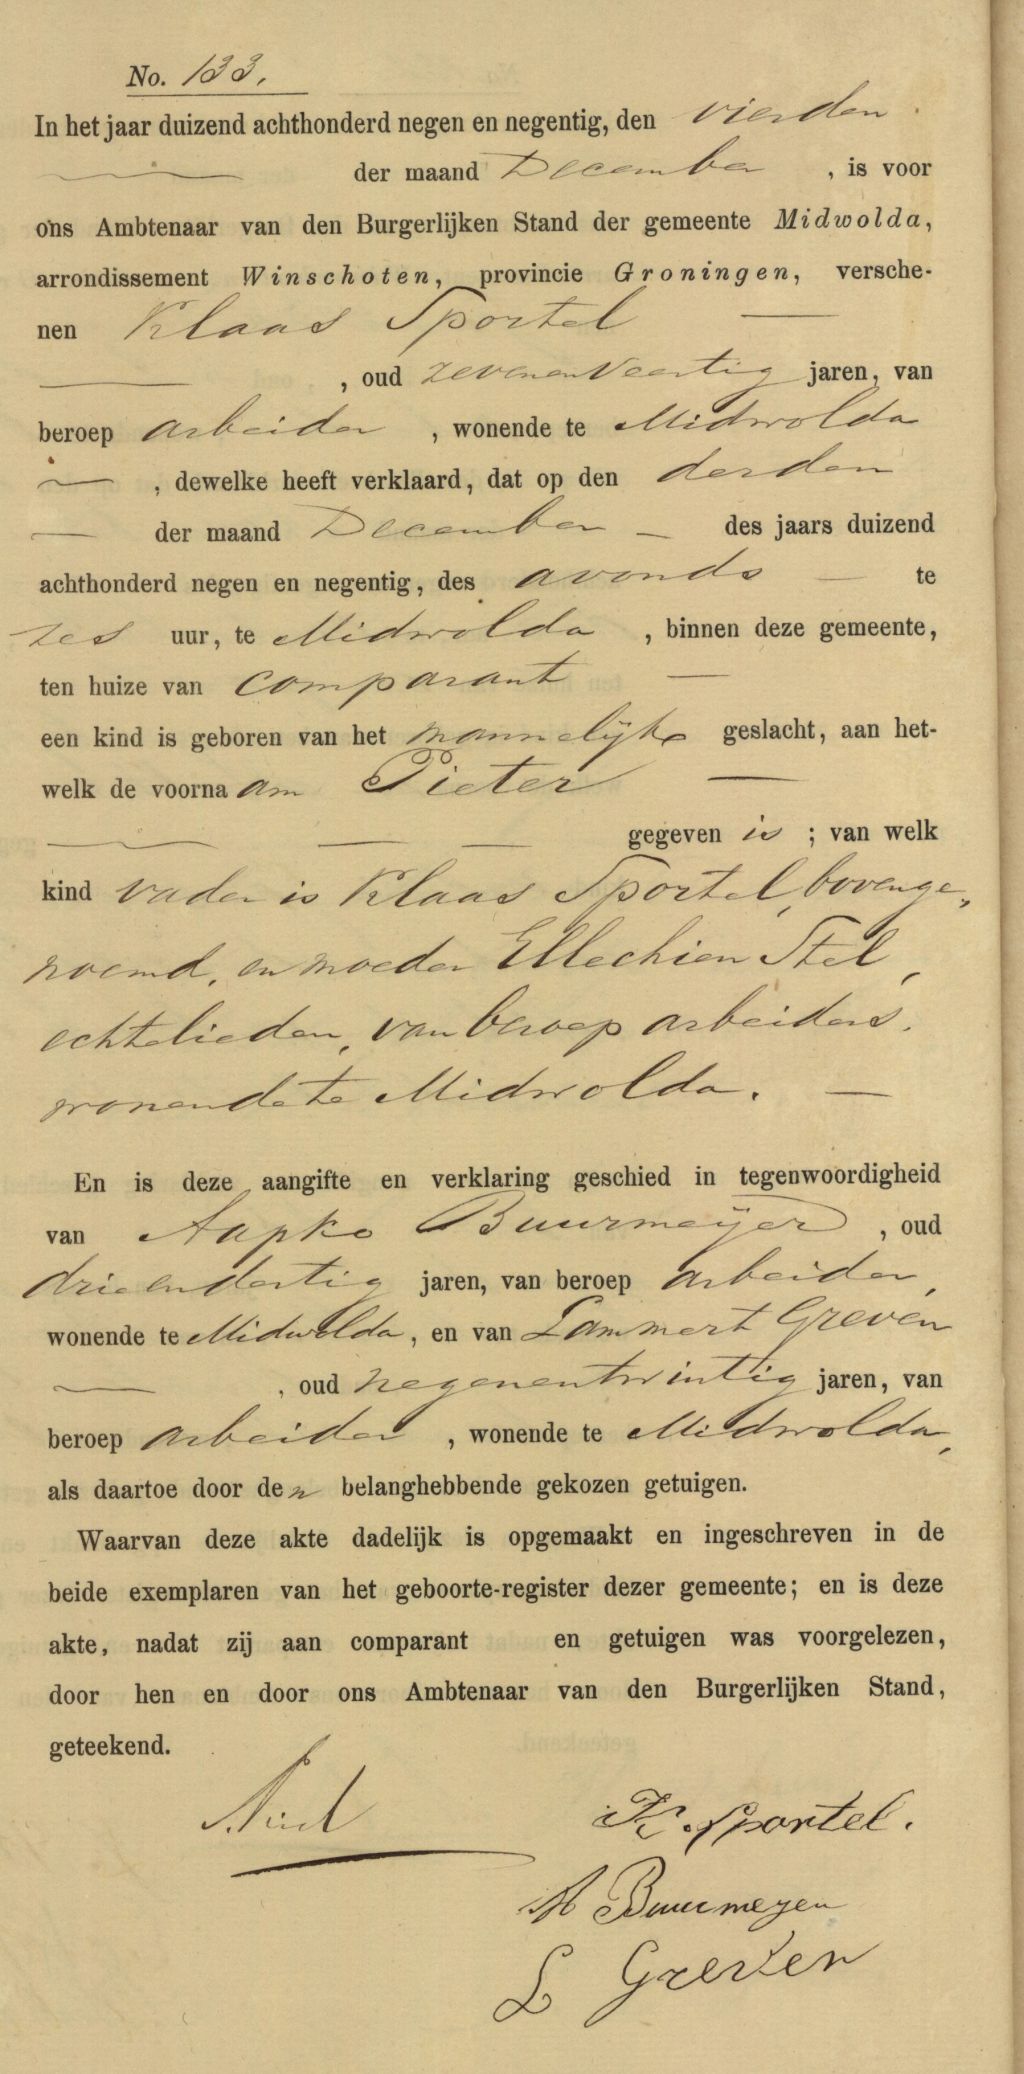 No. 133.
In het jaar duizend achthonderd negen en negentig, den vierden
der maand December, is voor
ons Ambtenaar van den Burgerlijken Stand der gemeente Midwolda,
arrondissement Winschoten, provincie Groningen, versche-
nen Klaas Sportel
, oud zevenenveertig jaren, van
beroep arbeider, wonende te Midwolda
, dewelke heeft verklaard, dat op den derden
der maand December des jaars duizend
achthonderd negen en negentig, des avonds te
zes uur, te Midwolda, binnen deze gemeente,
ten huize van comparant
een kind is geboren van het mannelijke geslacht, aan het-
welk de voornaam Pieter
gegeven is; van welk
kind vader is Klaas Sportel, bovenge-
noemd, en moeder Ellechien Stel,
echtelieden, van beroep arbeiders,
wonende te Midwolda.
En is deze aangifte en verklaring geschied in tegenwoordigheid
van Aapko Buurmeijer, oud
drieendertig jaren, van beroep arbeider,
wonende te Midwolda, en van Lammert Greven
, oud negenentwintig jaren, van
beroep arbeider, wonende te Midwolda,
als daartoe door den belanghebbende gekozen getuigen.
Waarvan deze akte dadelijk is opgemaakt en ingeschreven in de
beide exemplaren van het geboorte-register dezer gemeente; en is deze
akte, nadat zij aan comparant en getuigen was voorgelezen,
door hen en door ons Ambtenaar van den Burgerlijken Stand,
geteekend.
K. Sportel.
A Buurmeyer
L Greven